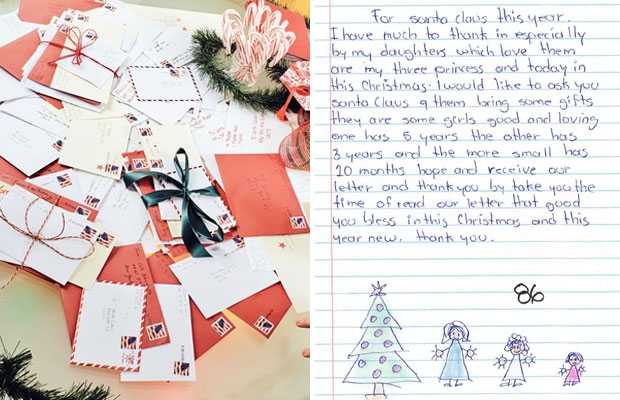 For santa claus this year.
I have much to thank in especially
by my daughters which love them
are my three princess and today in
this Christmas. I would like to ask you
santa claus q them bring some gifts
they are some girls good and loving
one has 5 years the other has
3 years and the more small has
10 months hope and receive our
letter and thank you by take you the
time of read our letter that good
you bless in this Christmas and this
year new. thank you.
86